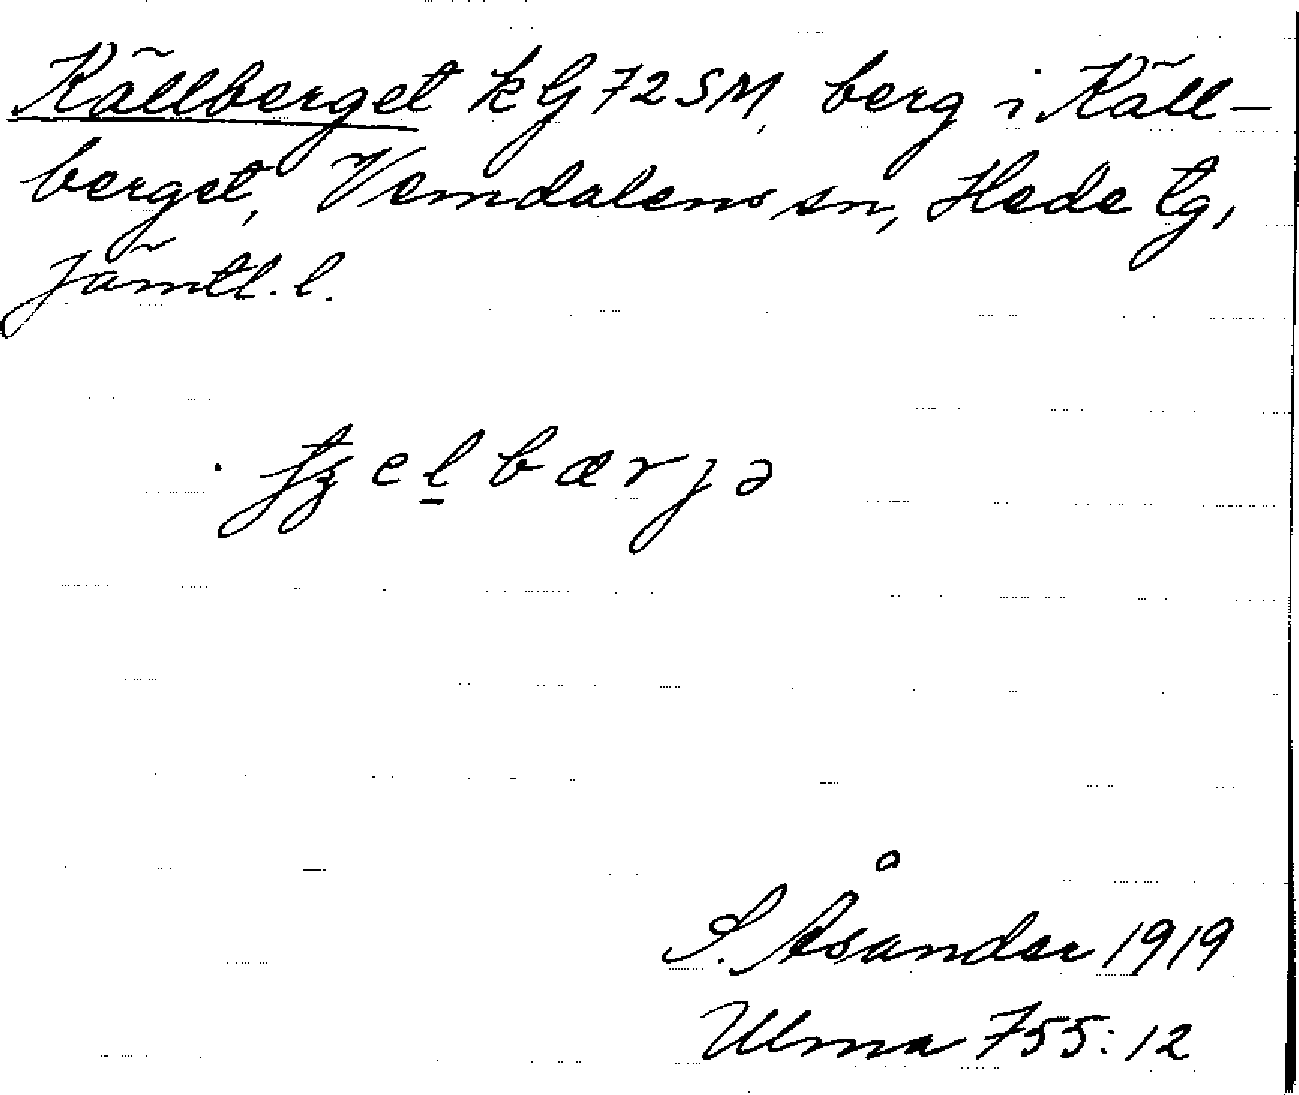 Källberget kG72SM, berg i Käll-
berget, Vemdalens sn, Hede tg,
Jämtl. l.
. tʒelbærjə
S. Åsander 1919
Ulma 755:12